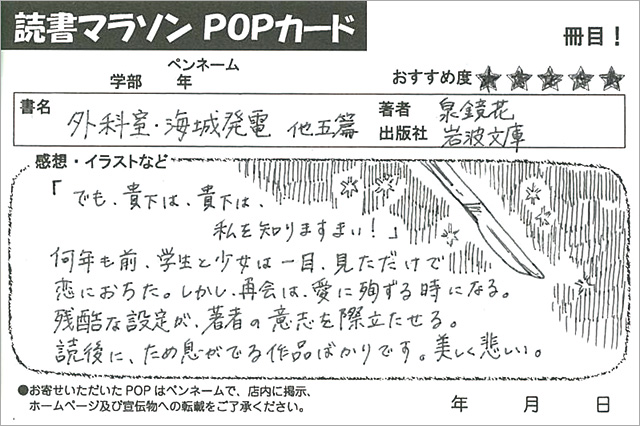 読書マラソン POPカード
冊目！
ペンネーム
学部 年
おすすめ度 ★★★★★
書名 外科室・海城発電 他五篇
著者 泉鏡花
出版社 岩波文庫
感想・イラストなど
「でも、貴下は、貴下は、
私を知りますまい！」
何年も前、学生と少女は一目、見ただけで
恋におちた。しかし、再会は、愛に殉ずる時になる。
残酷な設定が、著者の意志を際立たせる。
読後に、ため息がでる作品ばかりです。美しく悲しい。
●お寄せいただいたPOPはペンネームで、店内に掲示、
ホームページ及び宣伝物への転載をご了承ください。
年 月 日